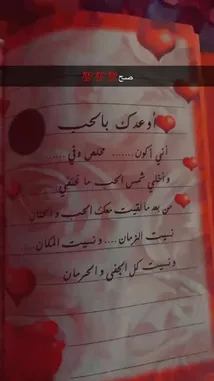 صح💯💯💯
أوعدك بالحب
أني أكون....... مخلص وفي ....
وأخلي شمس الحب ما تختفي
من بعد ما لقيت معك الحب و الحنان
نسيت الزمان .... و نسيت المكان
و نسيت كل الجفى و الحرمان